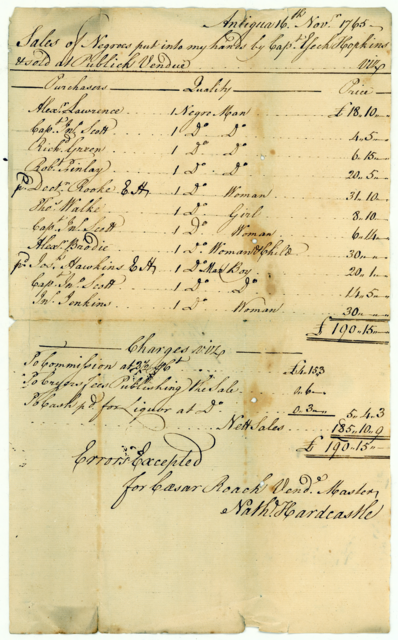 Antigua 16th Novr 1765
Sales of Negroes put into my hands by Capt Esech Hopkins
& sold at Publick Vendue Vizt
Purchasers Quality Price
Alexr Lawrence 1 Negro Man £18.10
Capt Jno Scott 1 Do Do 4.5
Richd Green 1 Do Do 6.15
Robt Finlay 1 Do Do 20.5
pd Doctr Rooke E H 1 Do Woman 31.10
Thos Walke 1 Do Girl 8.10
Capt Jno Scott 1 Do Woman 6.14
Alexr Boodie 1 Do Woman & Child 30
pd Jos. Hawkins E H 1 Do Man Boy 20.1
Capt Jno Scott 1 Do Do 14.5
Jno Jenkins 1 Do Woman 30
£190.15
Charges Vizt
To Commission at £4.15.3
To Cryers fees Publishing the Sale 0.6
To Cash pd for Liquor at Do 0.3 5.4.3
Nett Sales 185.10.9
£190.15
Errors Excepted
for Cæsar Roach Vende Master
Nathl Hardcastle